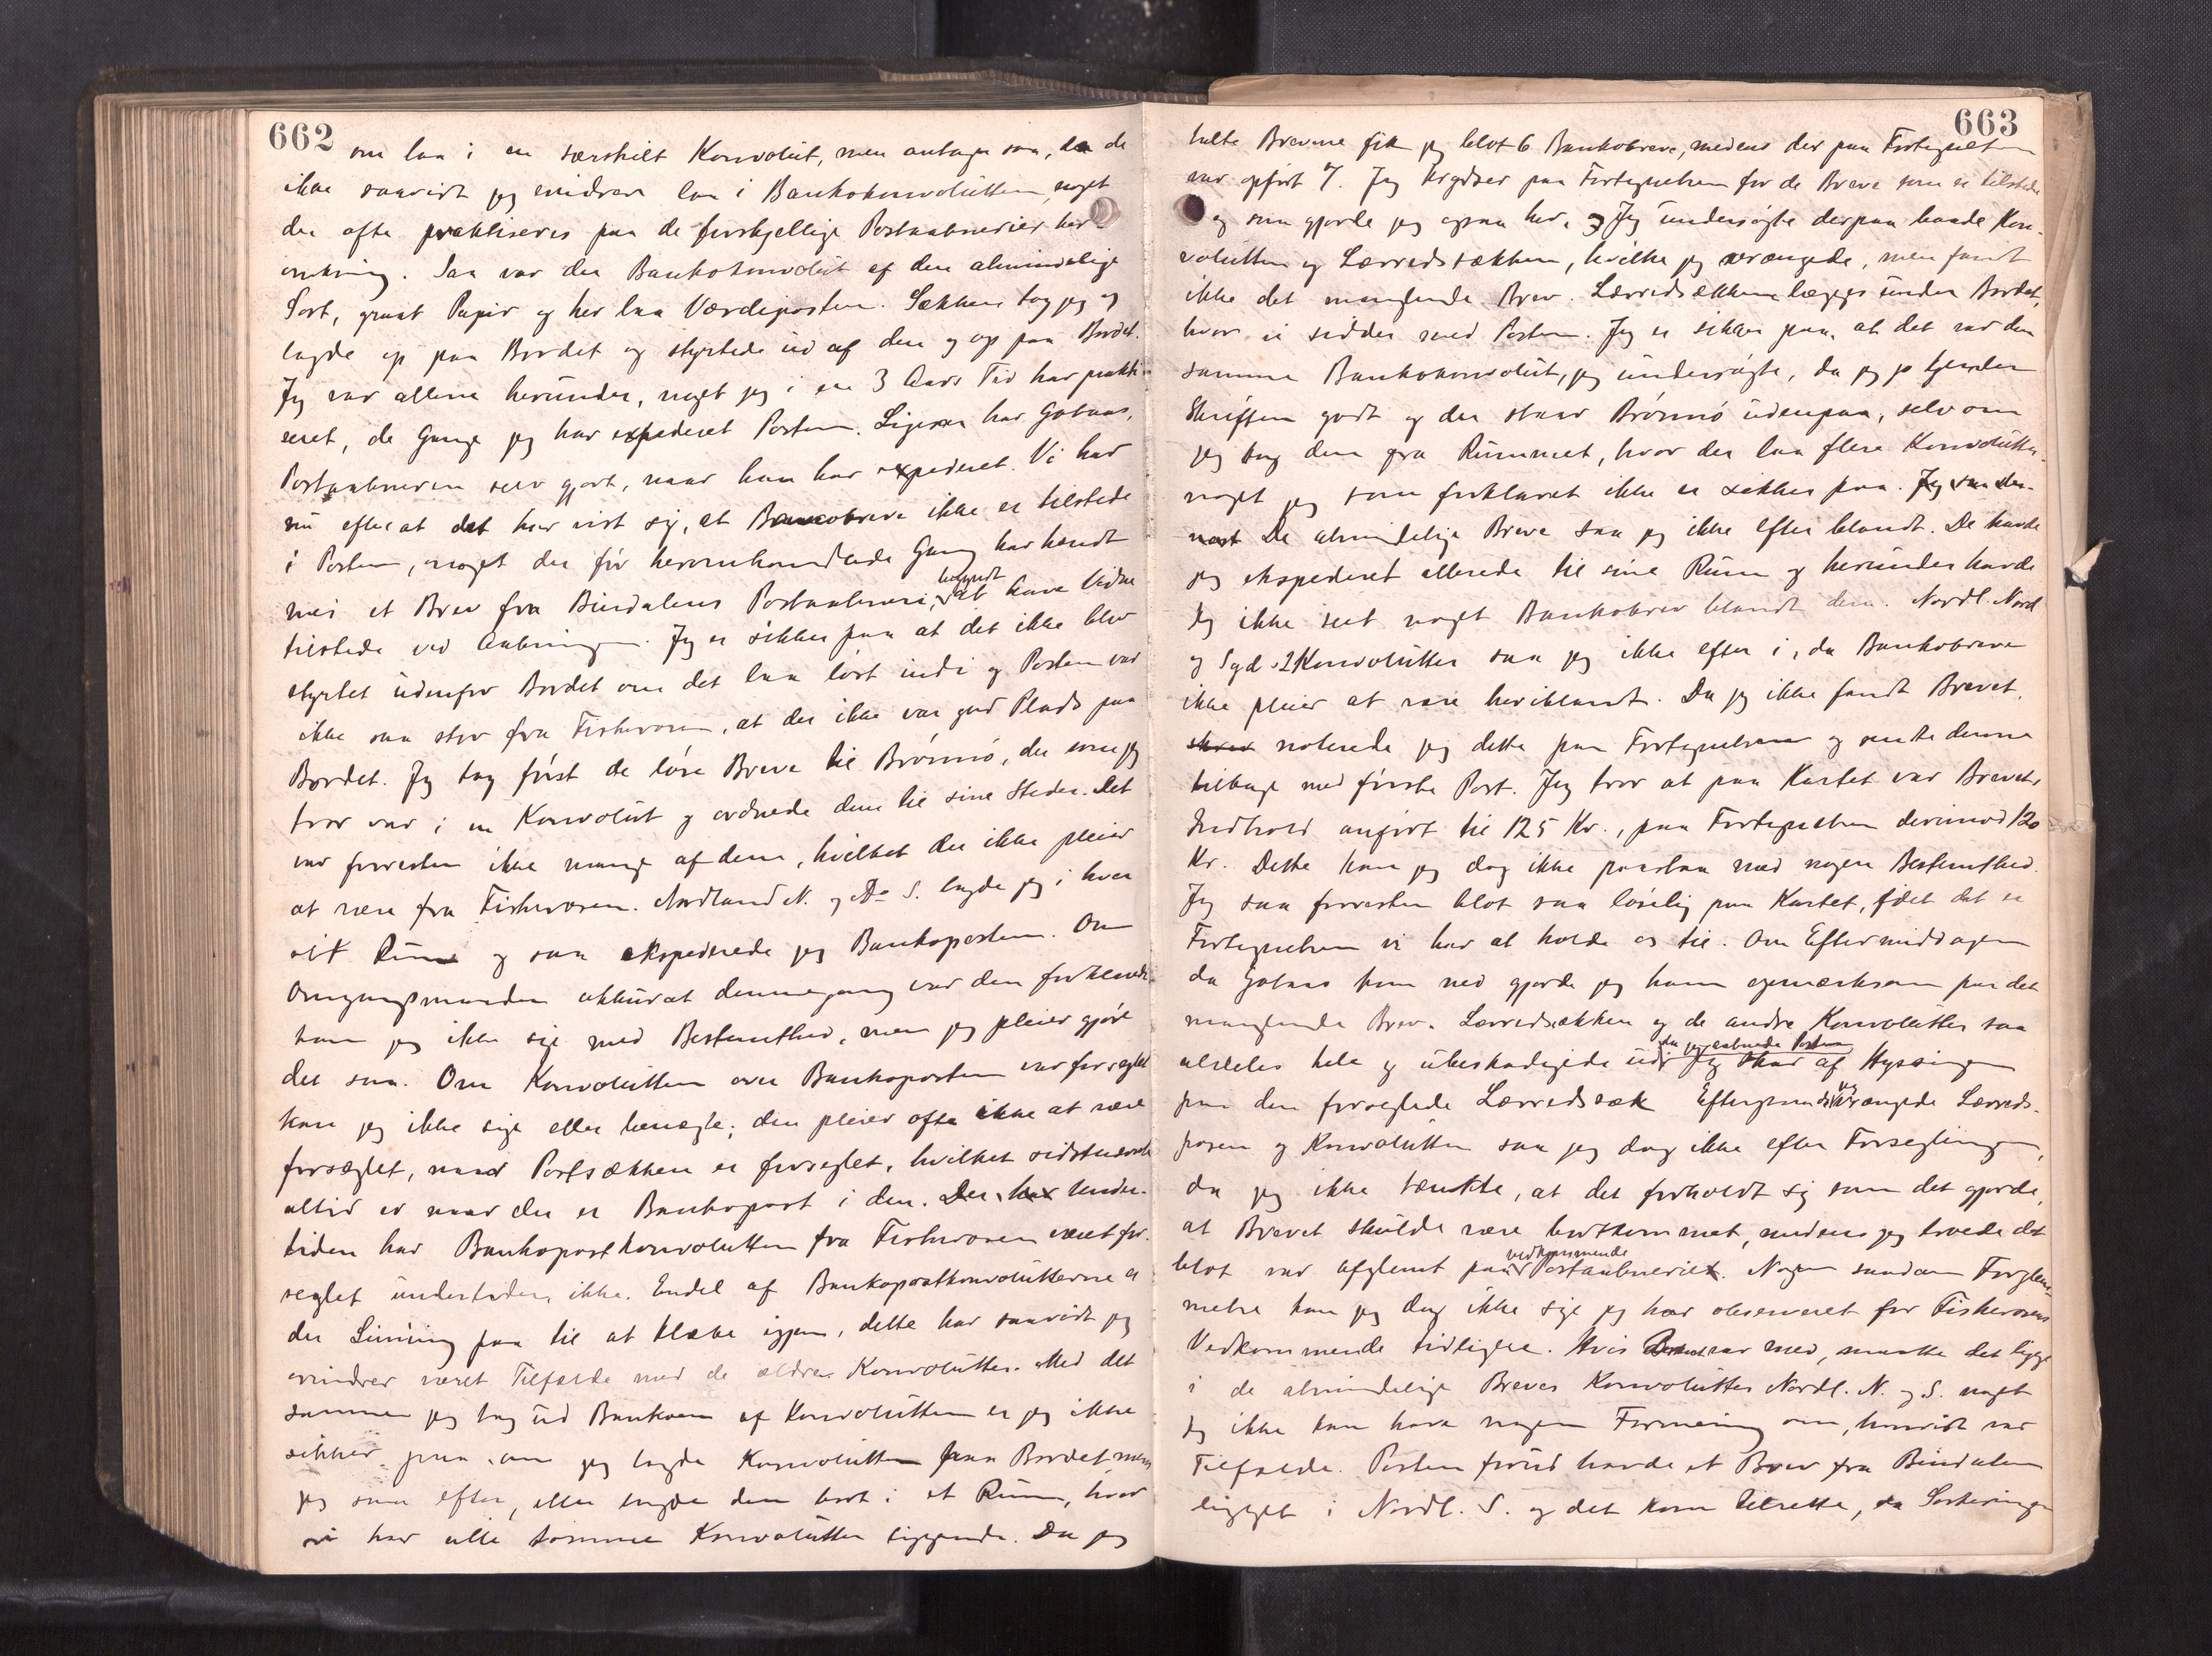 662
om laa i en særskilt Konvolut, men antager saa, da de
ikke saavidt jeg erindrer laa i Bankokonvolutten, noget
der ofte praktiseres paa de forskjellige Postaabnerier her
omkring. Saa var der Bankokonvolut af den almindelige
Sort, graat Papir og her laa Værdiposten. Sækken tog jeg og
lagde op paa Bordet og styrtede ud af den og op paa Bordet.
Jeg var allene herunder, noget jeg i en 3 Aars Tid har prakti-
seret, de Gange jeg har expederet Posten. Ligesaa har Gotaas,
Postaabneren selv gjort, naar han har expederet. Vi har
nu efter at det har vist sig, at Bankobreve ikke er tilstede
i Posten, noget der før heromhandlede Gang har hændt
med et Brev fra Bindalens Postaabneri, begyndt at have Vidne
tilstede ved Aabningen. Jeg er sikker paa at det ikke blev
styrtet udenfor Bordet om det laa løst indi og Posten var
ikke saa stor fra Fiskerosen, at der ikke var god Plads paa
Bordet. Jeg tog først de løse Breve til Brønnø, der som jeg
tror var i en Konvolut og ordnede dem til sine Steder. Det
var forresten ikke mange af dem, hvilket der ikke pleier
at være fra Fiskerosen. Nordland N. og Do S. lagde jeg i hver
sit Rum og saa ekspederede jeg Bankoposten. Om
Omgangsmaaden akkurat dennegang var den forklarede
kan jeg ikke sige med Bestemthed, men jeg pleier gjøre
det saa. Om Konvolutten over Bankoposten var forseglet
kan jeg ikke sige eller benægte; den pleier ofte ikke at være
forseglet, naar Postsækken er forseglet, hvilket sidstnævnte
altid er naar der er Bankopost i den. Der har Under-
tiden har Bankopostkonvolutten fra Fiskerosen været for-
seglet undertiden ikke. Endel af Bankopostkonvolutterne er
der Liming paa til at klæbe igjen, dette har saavidt jeg
erindrer været Tilfælde med de ældre Konvolutter. Med det
samme jeg tog ud Bankoen af Konvolutten er jeg ikke
sikker paa, om jeg lagde Konvolutten paa Bordet mens
jeg saa efter, eller lagde den bort i et Rum, hvor
vi har alle tomme Konvolutter liggende. Da jeg
663
talte Brevene fik jeg blot 6 Bankobreve, medens der paa Fortegnelsen
var opført 7. Jeg krydser paa Fortegnelsen for de Breve som er tilstede
og saa gjorde jeg ogsaa her. og Jeg undersøgte derpaa baade Kon-
volutten og Lærredssækken, hvilke jeg vrængede, men fandt
ikke det manglende Brev. Lærredsækkene lægges under Bordet,
hvor vi sidder med Posten. Jeg er sikker paa, at det var den
samme Bankokonvolut, jeg undersøgte, da jeg jo kjender
Skriften godt og der staar Brønnø udenpaa, selv om
jeg tog den fra Rummet, hvor der laa flere Konvolutter,
noget jeg som forklaret ikke er sikker paa. Jeg saa der-
næst De almindelige Breve saa jeg ikke efter blandt. De havde
jeg ekspederet allerede til sine Rum og herunder havde
jeg ikke seet noget Bankobrev blandt dem. Nordl. Nord
og Syd 2 Konvolutter saa jeg ikke efter i, da Bankobreve
ikke pleier at være heriblandt. Da jeg ikke fandt Brevet,
skrev noterede jeg dette paa Fortegnelsen og sendte denne
tilbage med første Post. Jeg tror at paa Kartet var Brevets
Indhold anført til 125 Kr., paa Fortegnelsen derimod 120
Kr. Dette kan jeg dog ikke paastaa med nogen Bestemthed.
Jeg saa forresten blot saa løselig paa Kartet, idet det er
Fortegnelsen vi har at holde os til. Om Eftermiddagen
da Gotaas kom ned gjorde jeg ham opmærksom paa det
manglende Brev. Lærredsækken og de andre Konvolutter saa
aldeles hele og ubeskadigede ud, da jeg aabnede Posten Jeg skar af Hyssingen
paa den forseglede Lærredssæk Eftergransk og Vrængede Lærreds-
posen og Konvolutten saa jeg dog ikke efter Forseglingen,
da jeg ikke tænkte, at det forholdt sig som det gjorde,
at Brevet skulde være bortkommet, medens jeg troede det
blot var afglemt paa vedkommende Postaabneriet. Nogen saadan Forglem-
melse kan jeg dog ikke sige jeg har observeret for Fiskerosens
Vedkommende tidligere. Hvis Brevet var med, maatte det ligge
i de almindelige Breves Konvolutter Nordl. N. og S. noget
jeg ikke kan have nogen Formening om, hvorvidt var
Tilfælde. Posten forud havde et Brev fra Bindalen
ligget i Nordl. S. og det kom tilrette, da Sorteringen